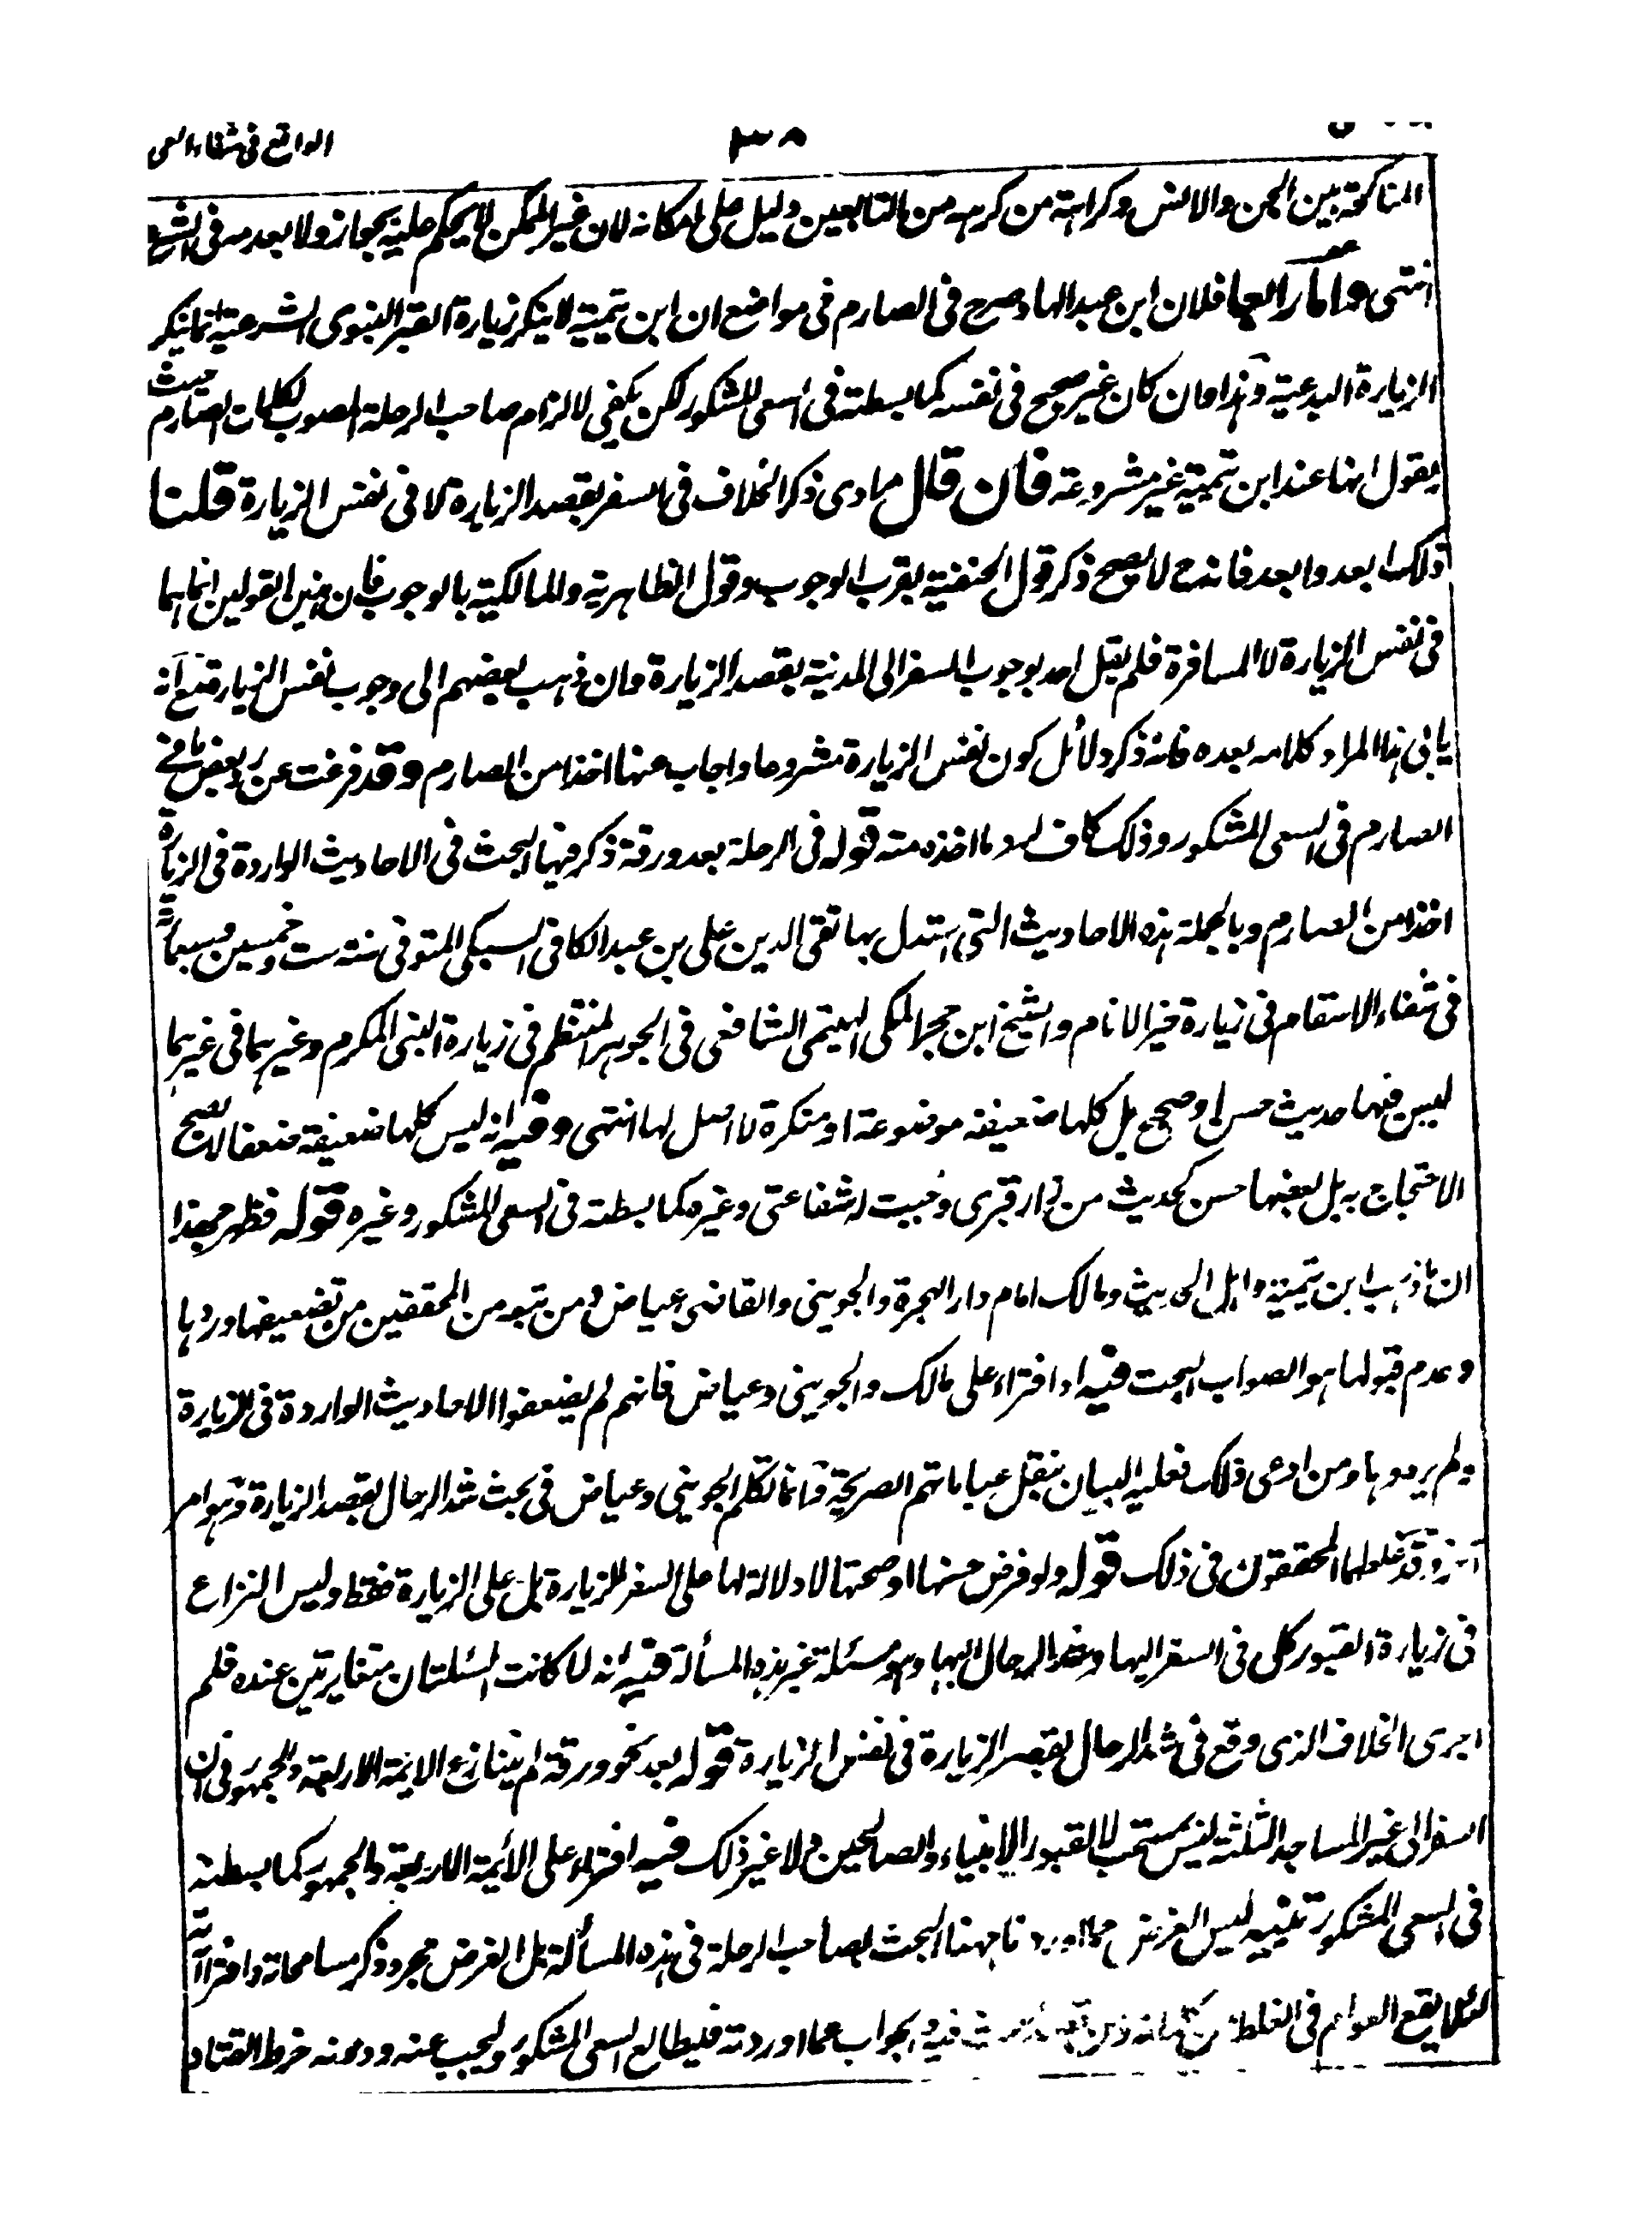 الواقع فى شفاء العى
٣٨
المناكحة بين الجن والانس وكراهة من كرهه من التابعين دليل على امكانه لان غير الممكن لا يحكم عليه بجواز ولا بعدمه فى الشرع
انتهى واما رابعا فلان ابن عبد الهاد صرح فى الصارم فى مواضع ان ابن تيمية لا ينكر زيارة القبر النبوى الشرعية انما ينكر
الزيارة البدعية وهذا وان كان غير صحيح فى نفسه كما بسطته فى السعى المشكور لكن يكفى لالزام صاحب الرحلة المصوب لكلمات الصارم حيث
يقول انها عند ابن تيمية غير مشروعة فان قال مرادى ذكر الخلاف فى السفر بقصد الزيارة لا فى نفس الزيارة قلنا
ذلك ابعد وابعد فانه ح لا يصح ذكر قول الحنفية بقرب الوجوب وقول الظاهرية والمالكية بالوجوب فان هذين القولين انما هما
فى نفس الزيارة لا المسافرة فلم يقل احد بوجوب السفر الى المدينة بقصد الزيارة وان ذهب بعضهم الى وجوب نفس الزيارة مع انه
يابى هذا المراد كلامه بعده فانه ذكر دلائل كون نفس الزيارة مشروعا واجاب عنها اخذا من الصارم وقد فرغت عن رد بعض ما فى
الصارم فى السعى المشكور وذلك كاف لرد ما اخذه منه قوله فى الرحلة بعد ورقة ذكر فيها البحث فى الاحاديث الواردة فى الزيارة
اخذا من الصارم وبالجملة هذه الاحاديث التى استدل بها تقى الدين على بن عبد الكافى السبكى المتوفى سنة ست وخمسين وسبعمائة
فى شفاء الاسقام فى زيارة خير الانام والشيخ ابن حجر المكى الهيتمى الشافعى فى الجوهر المنظم فى زيارة النبى المكرم وغيرهما فى غيرهما
ليس فيها حديث حسن او صحيح بل كلها ضعيفة موضوعة او منكرة لا اصل لها انتهى وفيه انه ليس كلها ضعيفة ضعفا لا يصح
الاحتجاج به بل بعضها حسن كحديث من زار قبرى وجبت له شفاعتى وغيره كما بسطته فى السعى المشكور وغيره قوله فظهر بهذا
ان ما ذهب ابن تيمية واهل الحديث ومالك امام دار الهجرة والجوينى والقاضى عياض ومن تبعه من المحققين من تضعيفها وردها
وعدم قبولها هو الصواب البحت فيه افتراء على مالك والجوينى وعياض فانهم لم يضعفوا الاحاديث الواردة فى الزيارة
ولم يردوها ومن ادعى ذلك فعليه البيان بنقل عباراتهم الصريحة وانما تكلم الجوينى وعياض فى بحث شد الرحال بقصد الزيارة وهو امر
آخر وقد غلطهما المحققون فى ذلك قوله ولو فرض حسنها او صحتها لا دلالة لها على السفر للزيارة بل على الزيارة فقط وليس النزاع
فى زيارة القبور كل فى السفر اليها وشد الرحال اليها وهو مسئلة غير هذه المسألة فيه انه لما كانت المسئلتان متغايرتين عنده فلم
اجرى الخلاف الذى وقع فى شد الرحال بقصد الزيارة فى نفس الزيارة قوله بعد نحو ورقة لم ينازع الائمة الاربعة والجمهور فى ان
السفر الى غير المساجد الثلثة ليس مستحب لا لقبور الانبياء والصالحين ولا غير ذلك فيه افتراء على الأيمة الاربعة والجمهور كما بسطته
فى السعى المشكور تنبيه ليس الغرض مما اوردنا ههنا البحث بصاحب الرحلة فى هذه المسألة بل الغرض مجرد ذكر مسامحاته وافتراآته
لئلا يقع العوام فى الغلط فيه والجواب عما اوردته فليطالع السعى المشكور وليجب عنه ودونه خرط القتاد